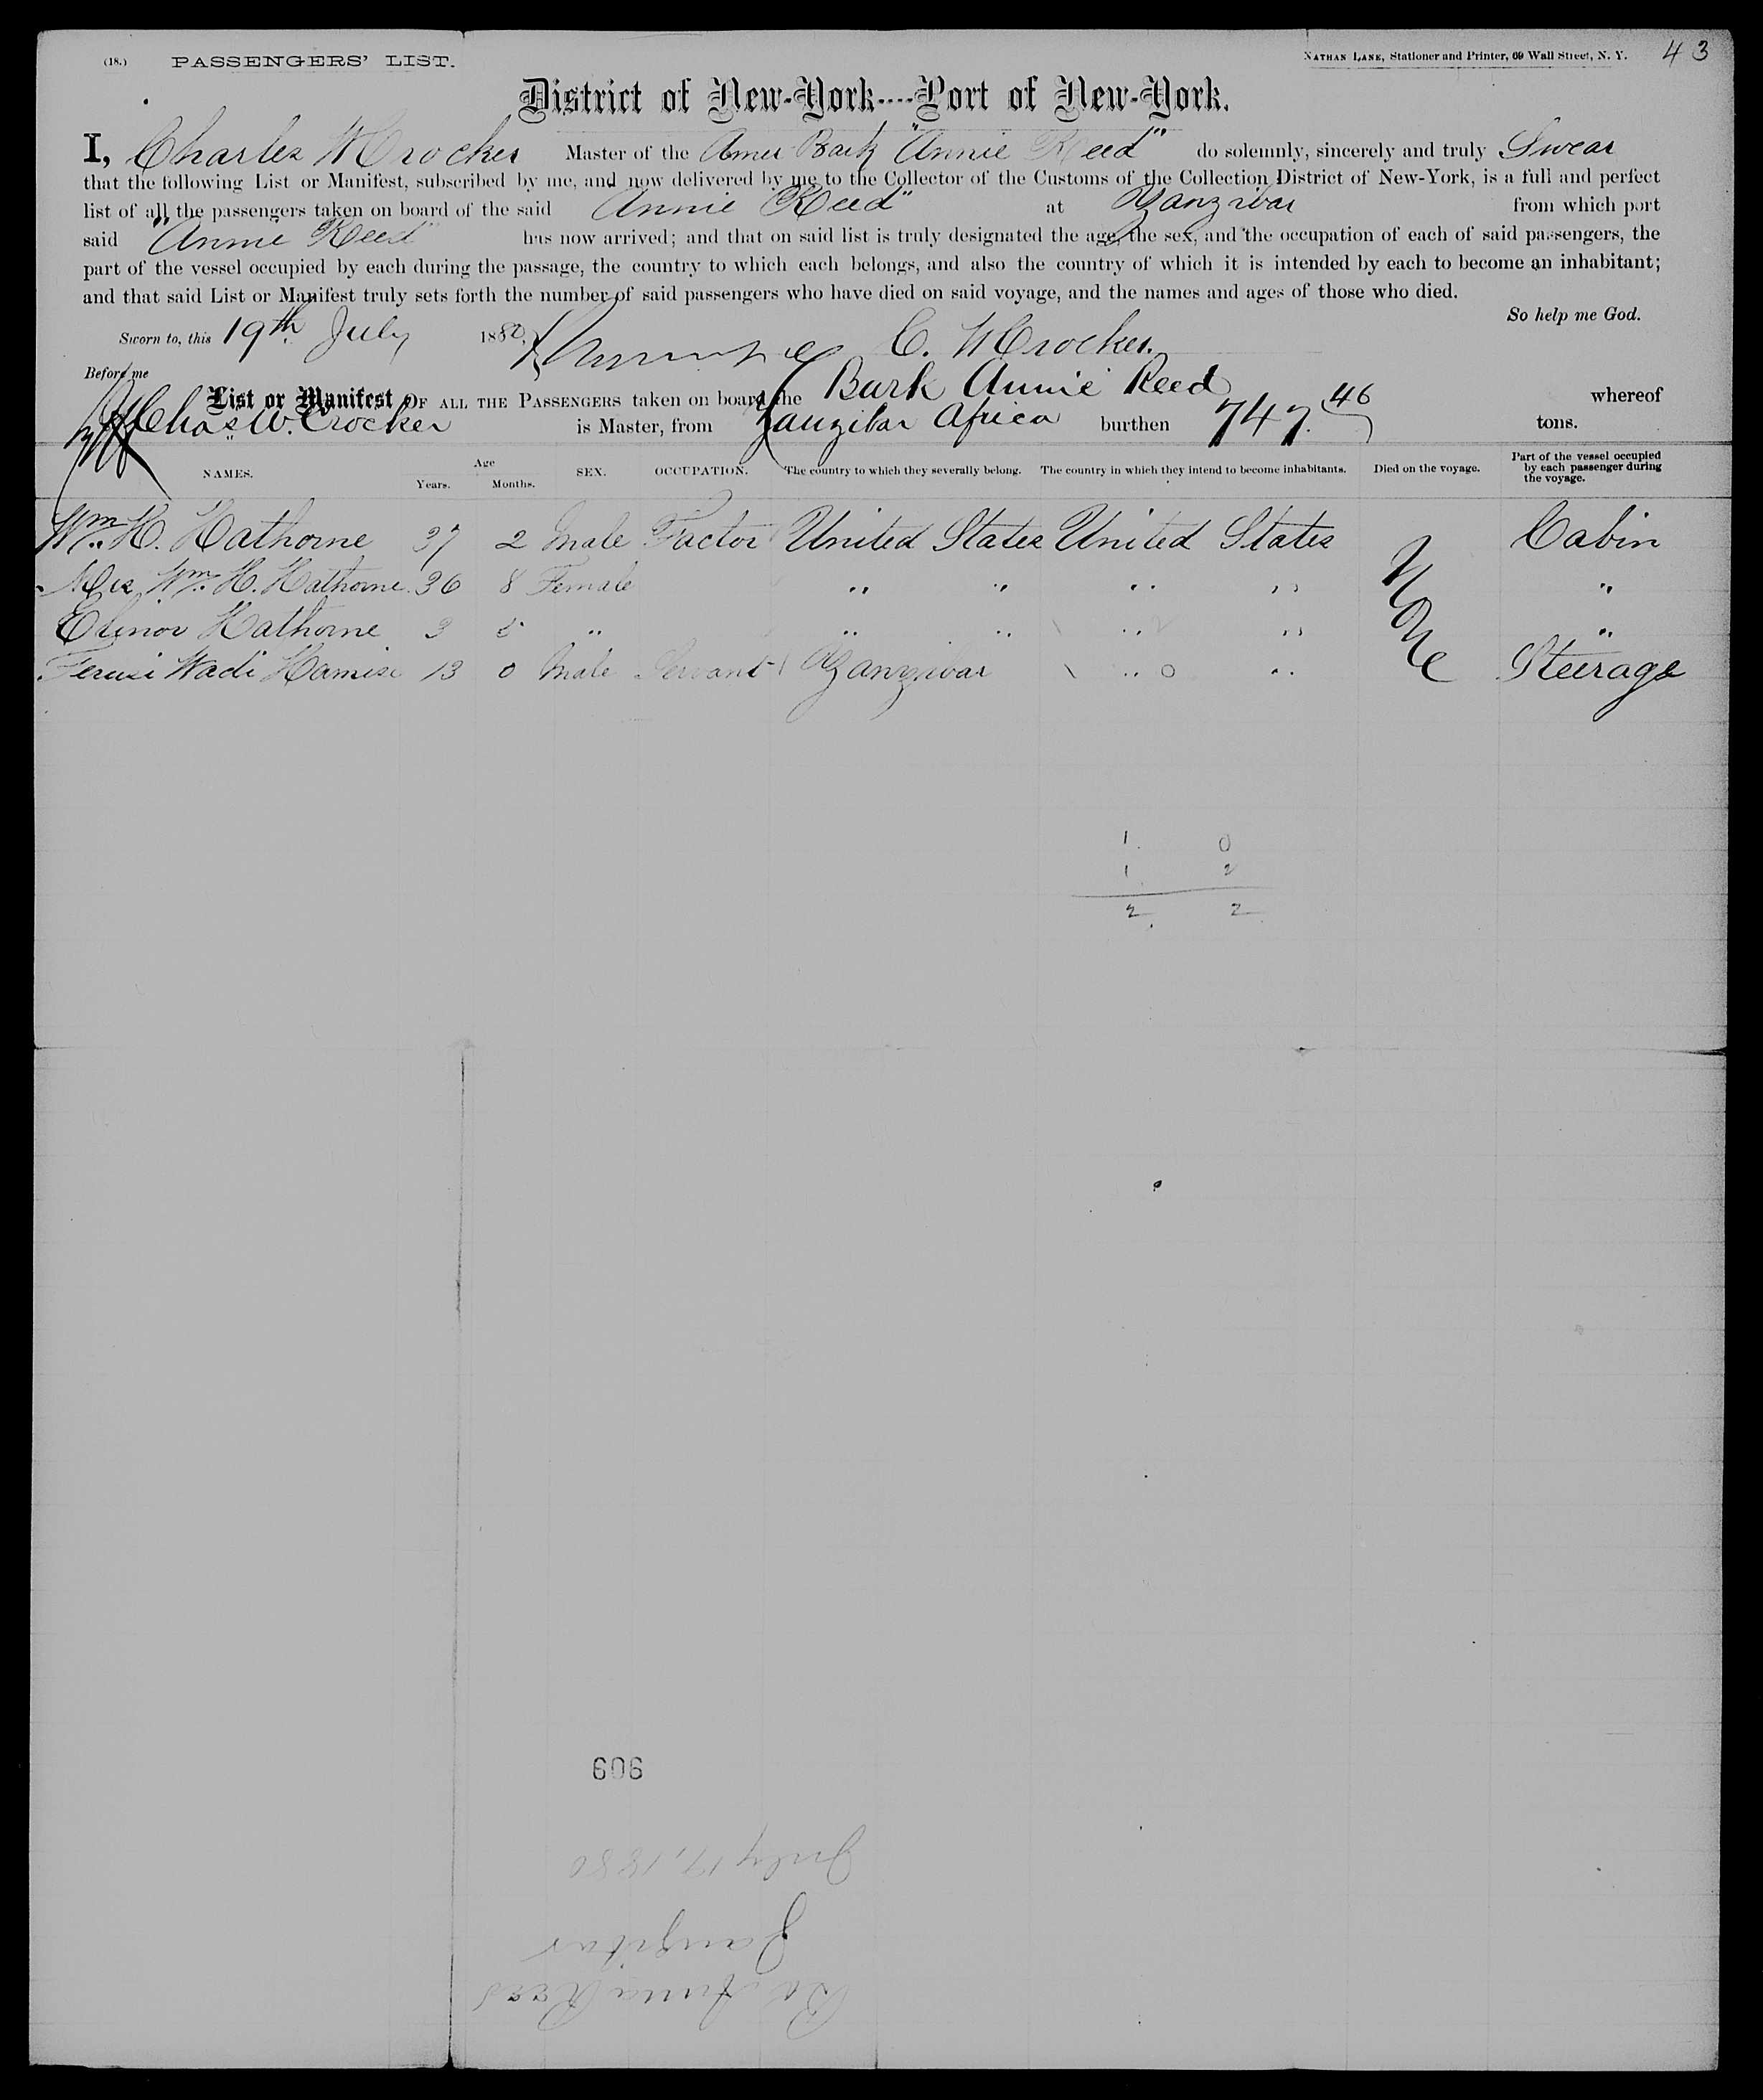 (18.) PASSENGERS' LIST. NATHAN LANE, Stationer and Printer, 69 Wall Street, N. Y. 43
District of New-York----Port of New-York.
I, Charles W Crocker Master of the Amer Bark "Annie Reed" do solemnly, sincerely and truly Swear
that the following List or Manifest, subscribed by me, and now delivered by me to the Collector of the Customs of the Collection District of New-York, is a full and perfect
list of all the passengers taken on board of the said Annie Reed" at Zanzibar from which port
said "Annie Reed" has now arrived; and that on said list is truly designated the age, the sex, and the occupation of each of said passengers, the
part of the vessel occupied by each during the passage, the country to which each belongs, and also the country of which it is intended by each to become an inhabitant;
and that said List or Manifest truly sets forth the number of said passengers who have died on said voyage, and the names and ages of those who died.
So help me God.
Sworn to, this 19th July 1880, C. W Crocker.
Before me
List or Manifest OF ALL THE PASSENGERS taken on board the Bark Annie Reed whereof
Chas W. Crocker is Master, from Zanzibar Africa burthen 747 46 tons.
NAMES. Age Years. Months. SEX. OCCUPATION. The country to which they severally belong. The country in which they intend to become inhabitants. Died on the voyage. Part of the vessel occupied by each passenger during the voyage.
Wm. H. Hathorne 37 2 Male Factor United States United States Cabin
Mrs Wm. H. Hathorne 36 8 Female " " " " "
Elinor Hathorne 3 5 " " " " " "
Ferusi Wadi Hamise 13 0 Male Servant Zanzibar " " Steerage
None
1 0
1 2
2 2
609
July 17, 1880
Zanzibar
Bk Annie Reed